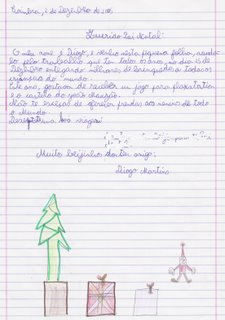 Coimbra, 2 de Dezembro de 2005
Querido Pai Natal:
O meu nome é Diogo, e
nesta pequena folha,
pelo trabalho que tens todos os anos, no dia 25 de
Dezembro entregando milhares de brinquedos a todas as
crianças do mundo.
Este ano, gostaria de receber um jogo para playstation
e o
Não te esqueças de oferecer prendas aos meninos de todo
o Mundo.
boa viagem
Muitos beijinhos do teu amigo:
Diogo Martins